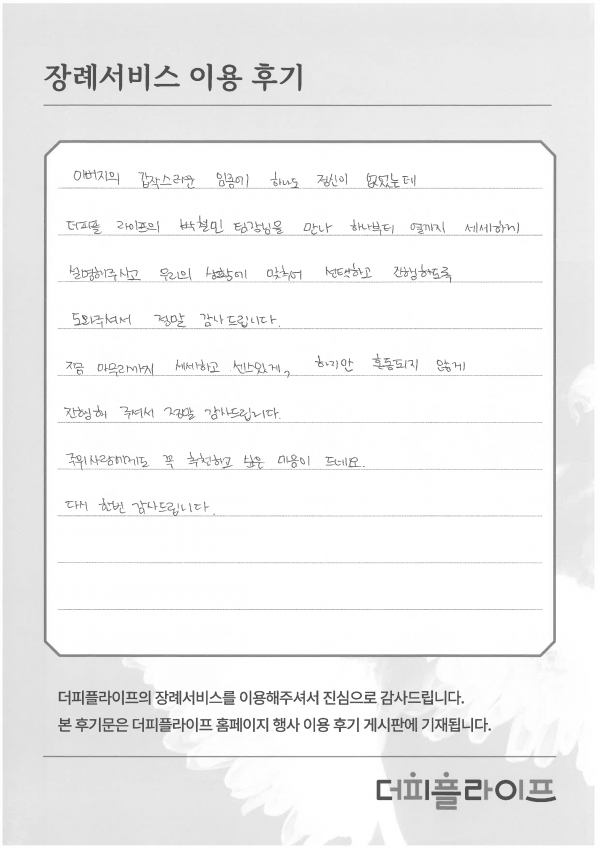 장례서비스 이용 후기
아버지의 갑작스러운 임종에 하나도 정신이 없었는데
더피플 라이프의 박철민 팀장님을 만나 하나부터 열까지 세세하게
설명해주시고 우리의 상황에 맞추어 선택하고 진행하도록
도와주셔서 정말 감사드립니다.
처음 마무리까지 세세하고 센스있게, 하지만 혼동되지 않게
진행해 주셔서 정말 감사드립니다.
주위사람에게도 꼭 추천하고 싶은 마음이 드네요.
다시 한번 감사드립니다.
더피플라이프의 장례서비스를 이용해주셔서 진심으로 감사드립니다.
본 후기문은 더피플라이프 홈페이지 행사 이용 후기 게시판에 기재됩니다.
더피플라이프